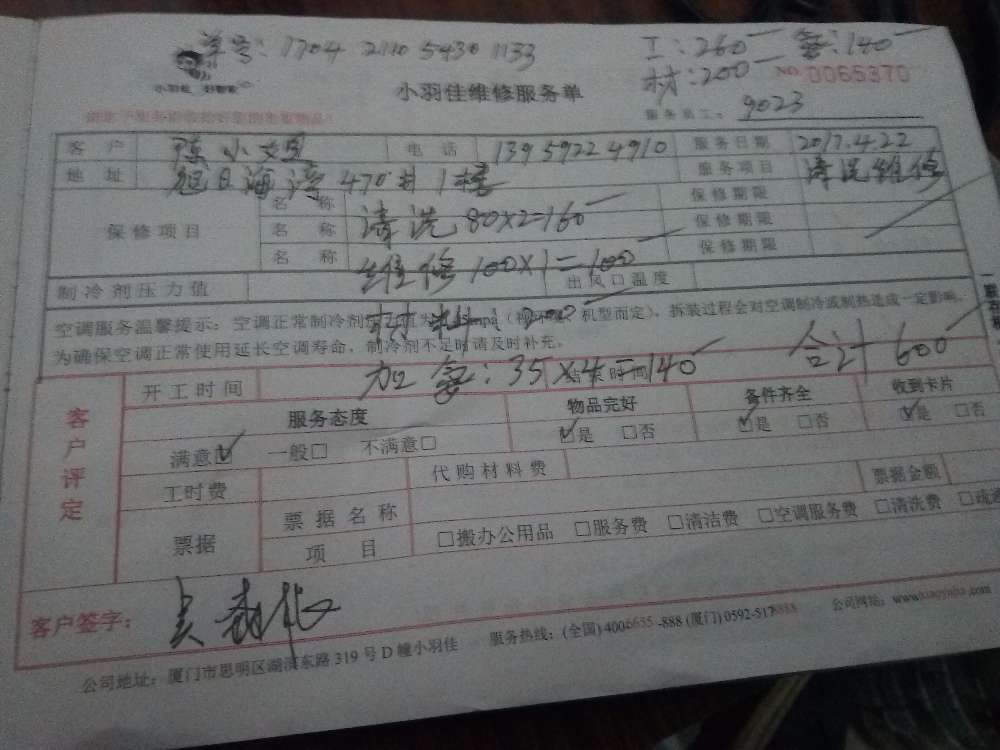 单号：1704 2110 5430 1133
工：260 氟：140
材：200
NO. 0065370
小羽佳
小羽佳维修服务单
服务员工： 9023
客户 陈小姐 电话 13959224910 服务日期 2017.4.22
地址 旭日海湾470#1楼 服务项目 清洗维修
保修项目
名称 清洗80×2=160 保修期限
名称 维修100×1=100 保修期限
名称 保修期限
制冷剂压力值 出风口温度
材料：200
空调服务温馨提示：空调正常制冷剂 机型而定），拆装过程会对空调制冷或制热造成一定影响，
为确保空调正常使用延长空调寿命，制冷剂不足时请及时补充。
加氟：35×4=140 合计600
客户评定
开工时间 结束时间
服务态度 物品完好 备件齐全 收到卡片
满意☑ 一般□ 不满意□ ☑是 □否 ☑是 □否 ☑是 □否
工时费 代购材料费 票据金额
票据 票据名称
项目 □搬办公用品 □服务费 □清洁费 □空调服务费 □清洗费
客户签字：
公司地址：厦门市思明区湖滨东路319号D幢小羽佳 服务热线：(全国) 4006655-888 (厦门) 0592-5178888 公司网址：www.xiaoyujia.com